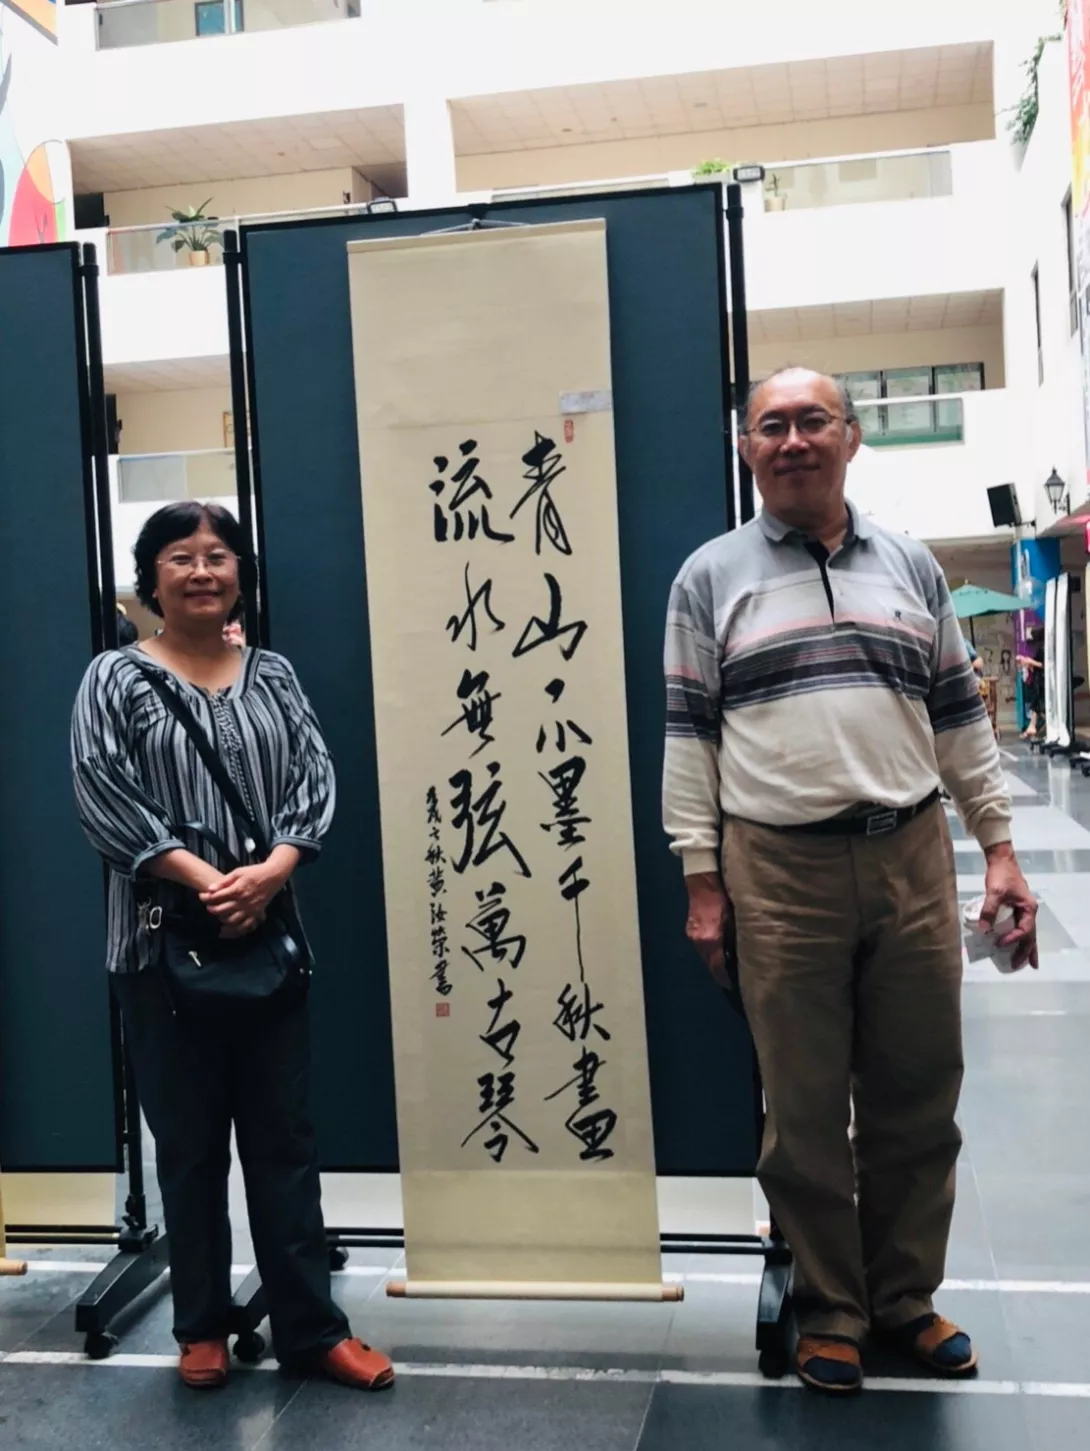 青山不墨千秋畫
流水無弦萬古琴
戊戌之秋黃汝榮書